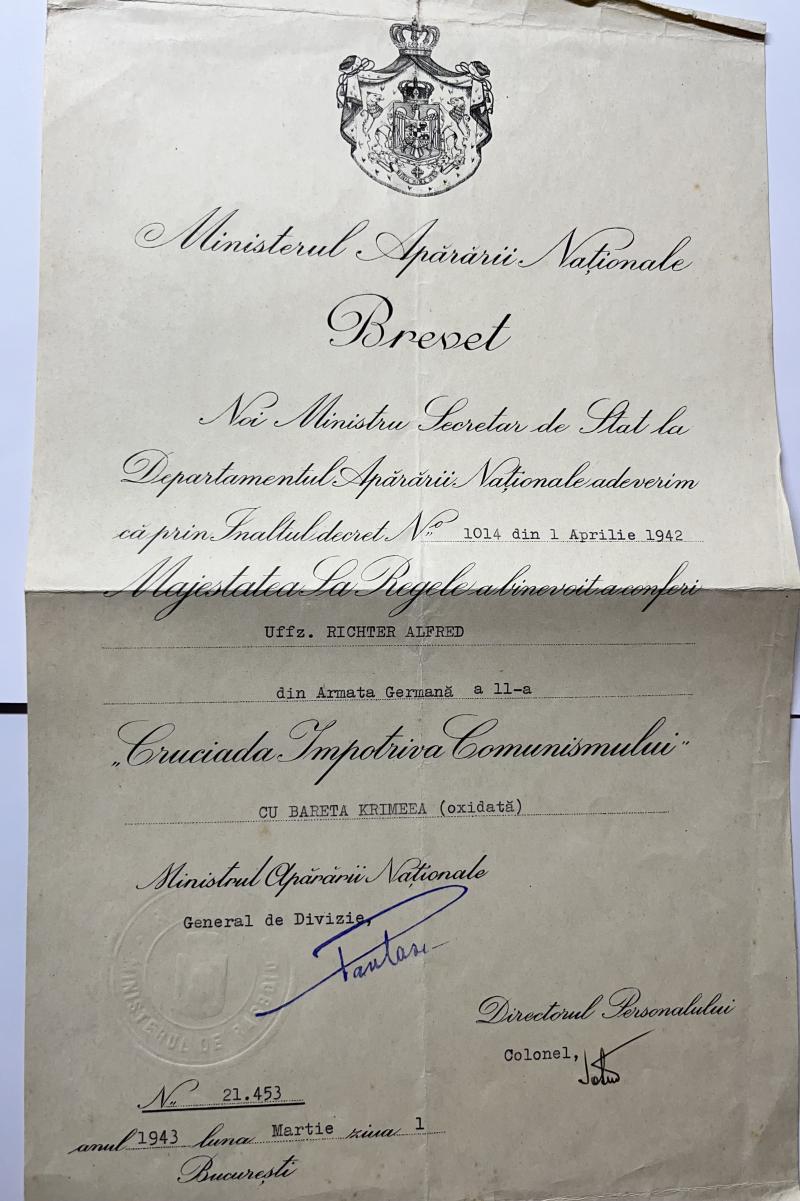 Ministerul Apărării Naționale
Brevet
Noi Ministru Secretar de Stat la
Departamentul Apărării Naționale adeverim
că prin Inaltul decret No 1014 din 1 Aprilie 1942
Majestatea Sa Regele a binevoit a conferi
Uffz. RICHTER ALFRED
din Armata Germană a 11-a
„Cruciada Impotriva Comunismului"
CU BARETA KRIMEEA (oxidată)
Ministrul Apărării Naționale
General de Divizie,
MINISTERUL DE RĂZBOIU
Directorul Personalului
Colonel,
No. 21.453
anul 1943 luna Martie ziua 1
București